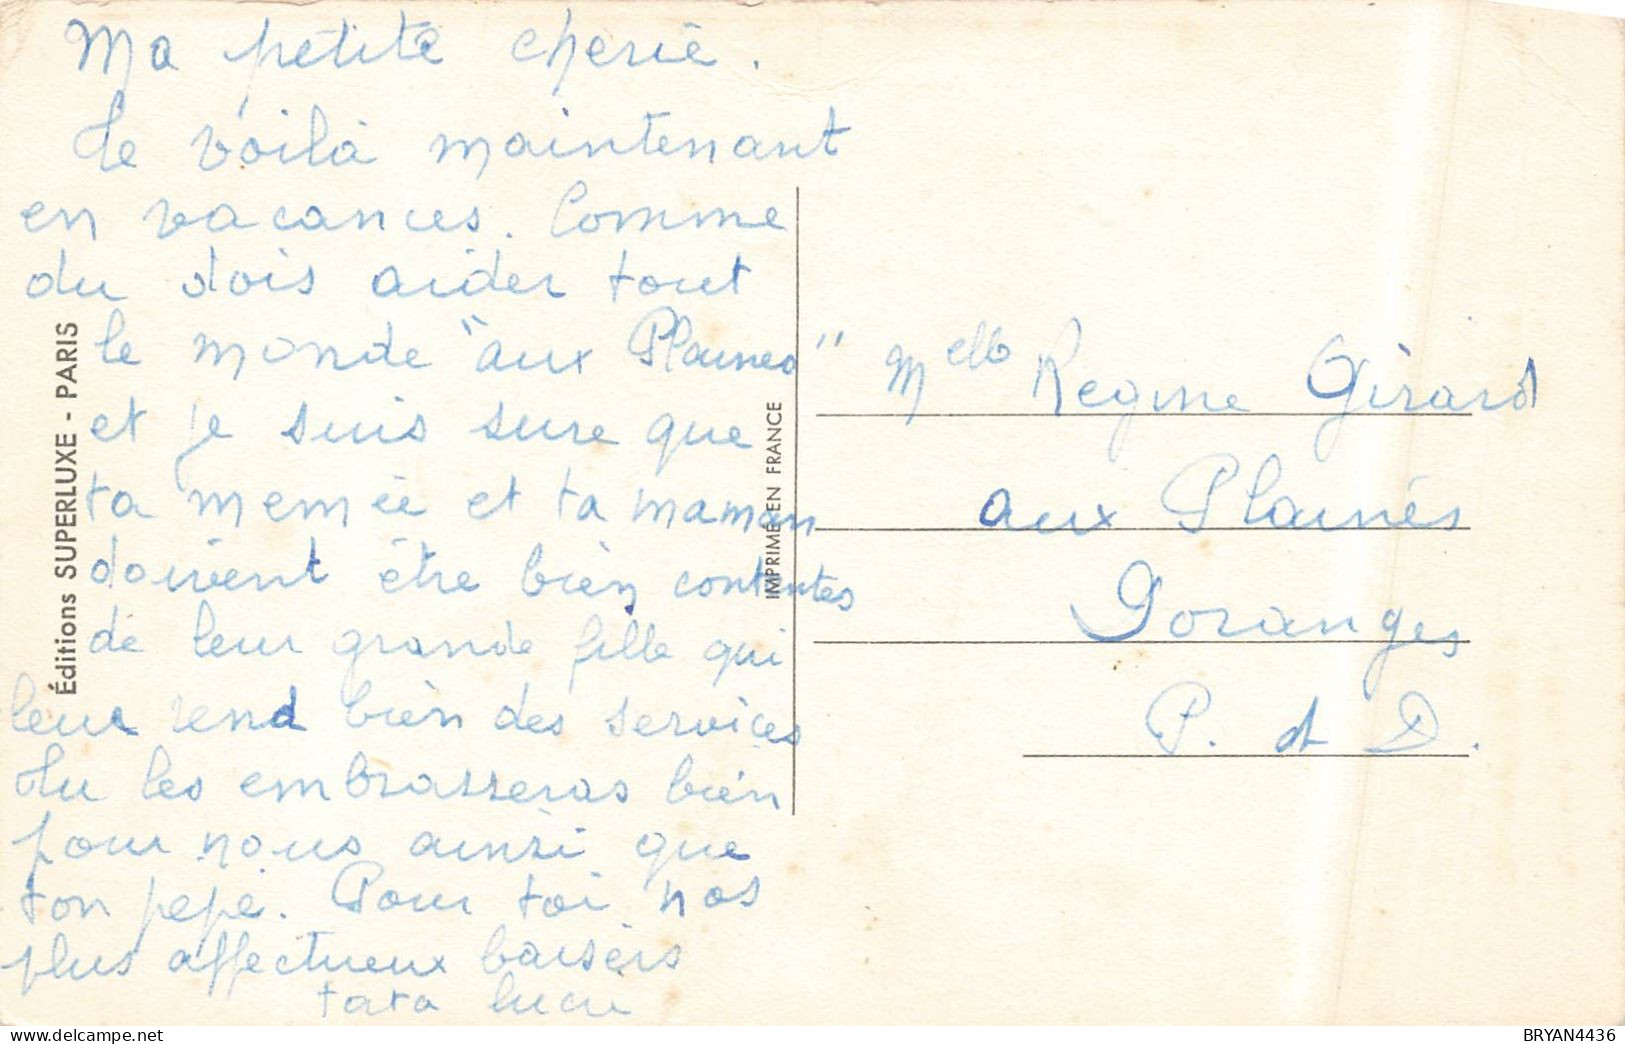 Ma petite cherie.
Te voilà maintenant
en vacances. Comme
tu dois aider tout
le monde "aux Plaines"
et je suis sure que
ta memée et ta maman
doivent être bien contentes
de leur grande fille qui
leur rend bien des services
Tu les embrasseras bien
pour nous ainsi que
ton pépé. Pour toi nos
plus affectueux baisers
tata Lucie
Éditions SUPERLUXE - PARIS
IMPRIMÉ EN FRANCE
Melle Regine Girard
aux Plaines
Doranges
P. d D.
BRYAN4436